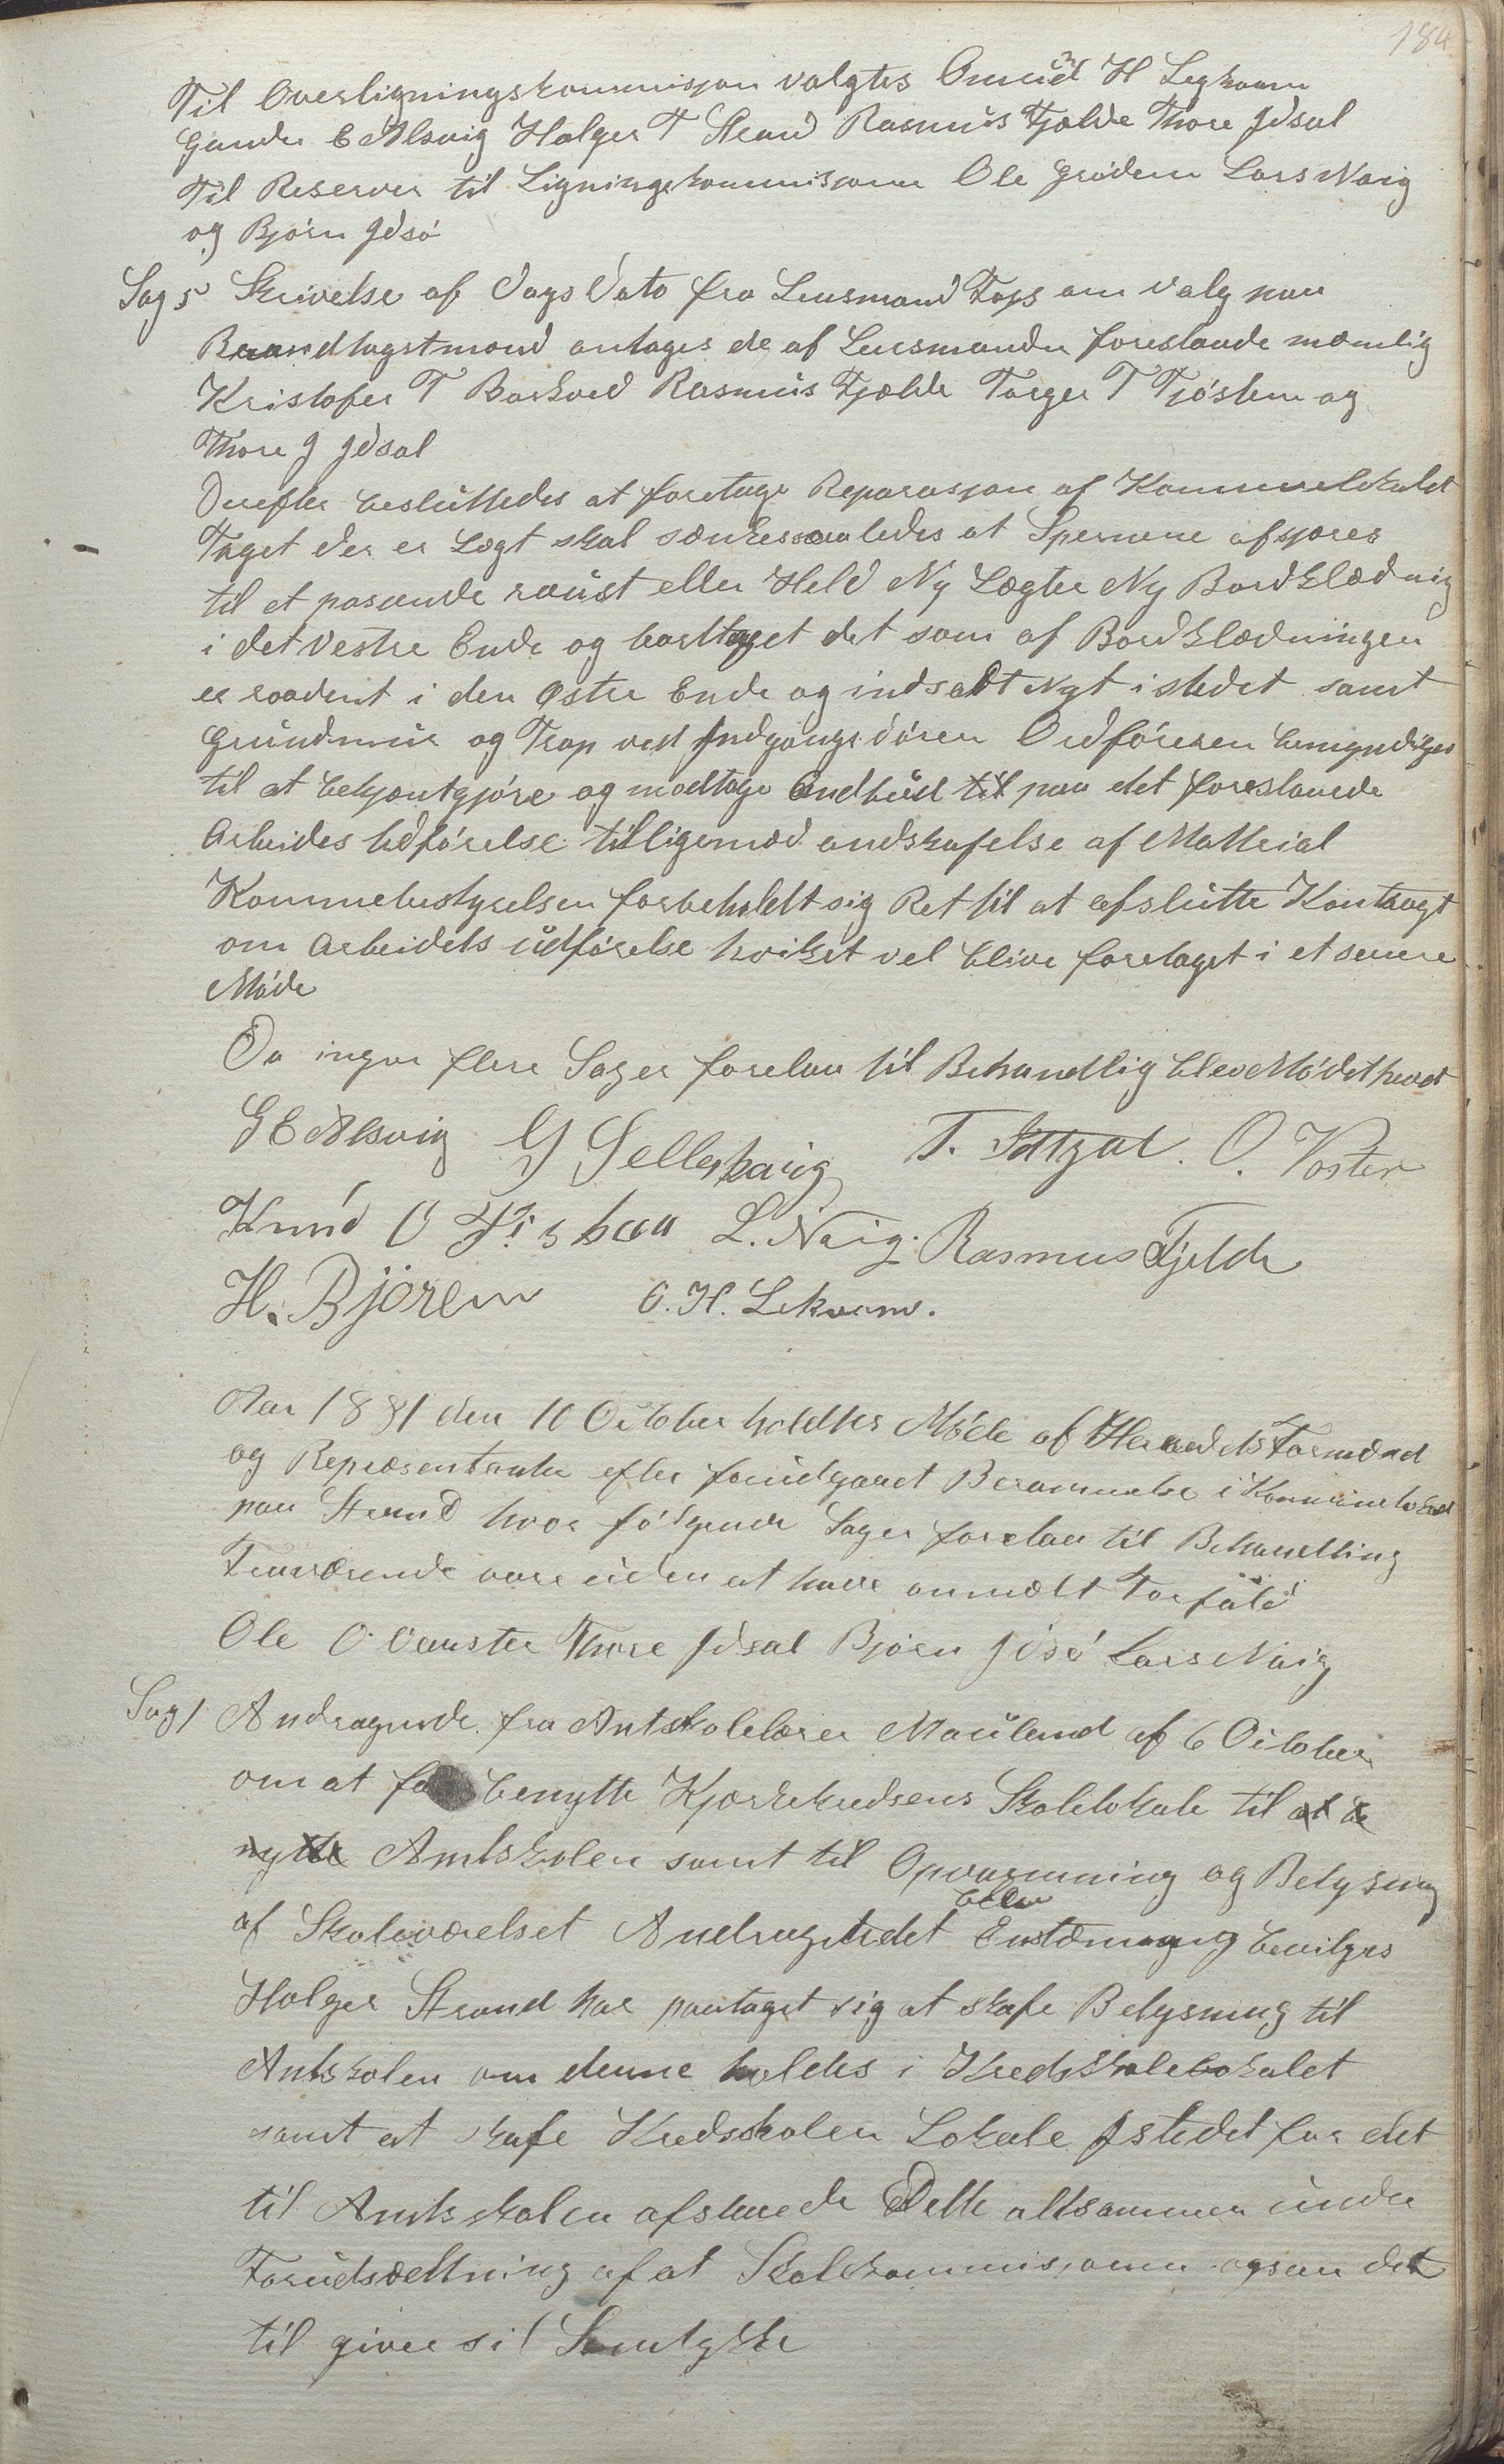 184
Til Overligningskommisjon valgtes Omund H Legkvam
Gunder E Alsvig Holger T Strand Rasmus Fjelde Thore Idsal
Til Reserver til Ligningskommisjonen Ole Grødem Lars Nøig
og Bjørn Idsø
Sag 5 Skrivelse af Dags Dato fra Lensmand Fops om valg paa
Brandtagstmænd antages de af Lensmanden foreslaade næmlig
Kristofer T Barkved Rasmus Fjelde Torger T Tjøstem og
Thore J Idsal
Derefter besluttedes at foretage Reparasjon af Kommunelokalet
Taget der er Lagt skal sænkes saaledes at Sperrene afsjæres
til et pasende raust eller Held Ny Lægter Ny Bordklædnig
i det Vestre Ende og borttaget det som af Bordklædningen
er raadent i den Østre Ende og indsadt Nyt istedet samt
Grundmur og Trap ved Indgangsdøren Ordføreren bemyndiges
til at bekjentgjøre og modtage Andbud til paa det foreslaaede
Arbeides Udførelse tilligemed andskafelse af Matterial
Kommunebestyrelsen forbeholdt sig Ret til at afslutte Kontragt
om Arbeidets udførelse hvilket vel blive foretaget i et senere
Møde
Da ingen flere Sager forelaa til Behandlig blev Mødet hævet
G E Alsvig G Selleskavig T. Idtzal. O. Voster
Knud O Fiskaa L. Nøig. Rasmus Fjelde
H. Bjøren O. H. Lekvam.
Aar 1881 den 10 October holdtes Møde af Heredets Formænd
og Repræsentanter efter forudgaaet Berammelse i Kommunelokalet
paa Strand hvor følgende Sager forelaa til Behandling
Fraværende vare uden at have anmældt Forfald
Ole O Vauster Thore Idsal Bjørn Idsø Lars Nøig
Sag 1 Andragende fra Amtskolelærer Mauland af 6 October
om at faa benytte Kjærkekredsens Skolelokale til at be
nytte Amtskolen samt til Opvarmning og Belysning
blev
af Skoleværelset Andragendet Enstemmig bevilges
Holger Strand har paataget sig at skafe Belysning til
Amtskolen om denne holdes i Kredsskolelokalet
samt at skafe Kredsskolen Lokale istedet for det
til Amtsskolen afstaaede Dette altsammen under
Forudsættning af at Skolekommisjonen ogsaa der
til giver sit Samtykke